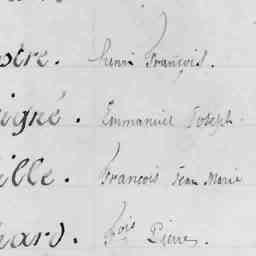 otre. henri François.
igné. Emmanuel Joseph.
ille. François Jean Marie
hard. fois Pierre.